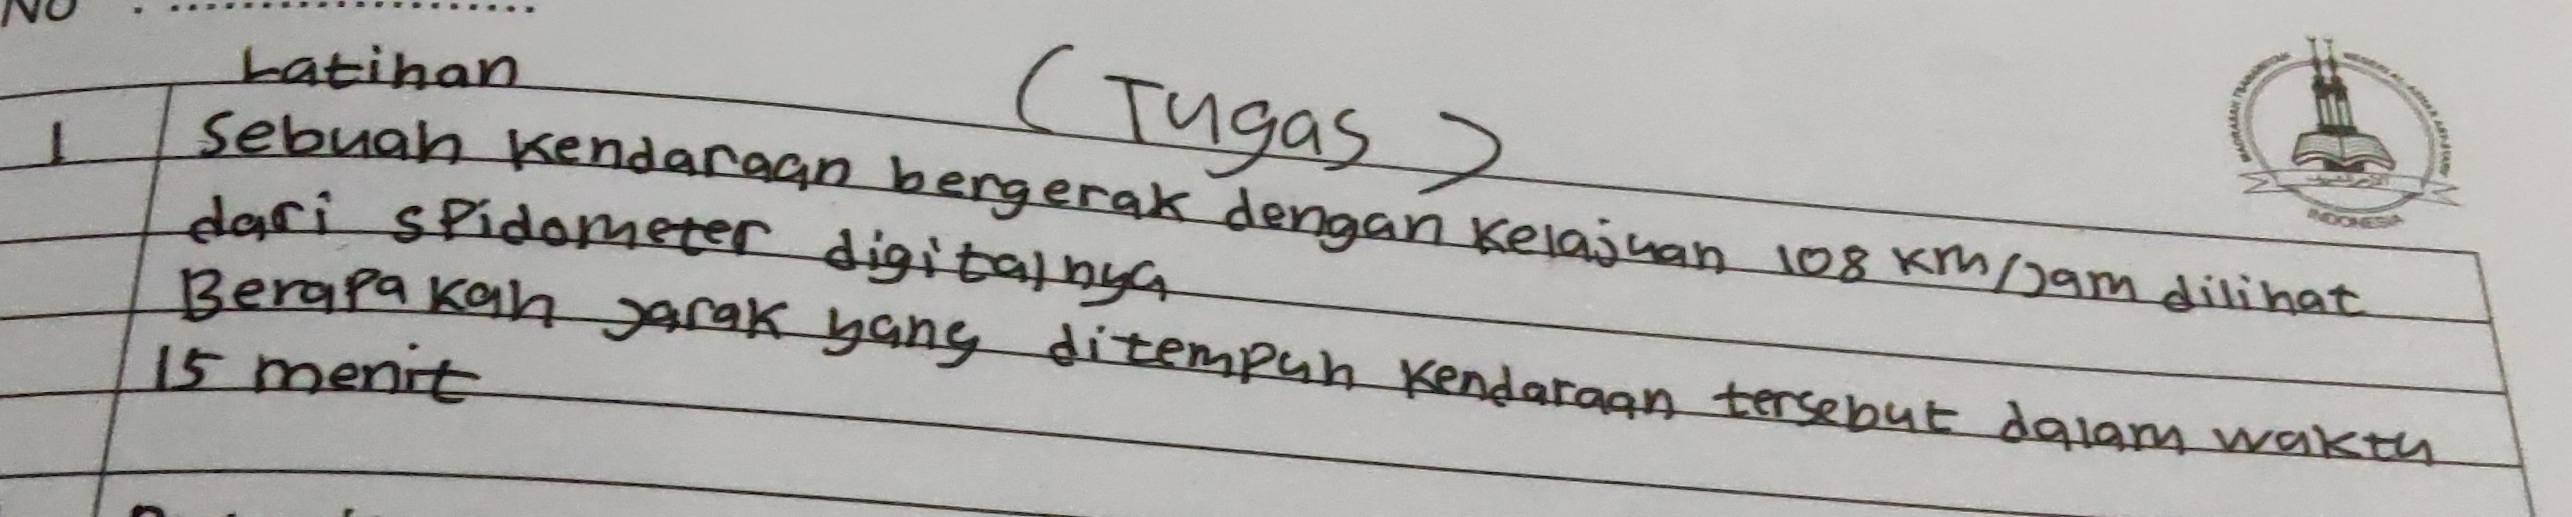 NO : ....................
Latihan
(Tugas)
1 Sebuah kendaraan bergerak dengan kelajuan 108 km/jam dilihat
dari spidometer digitalnya
Berapa kah jarak yang ditempuh kendaraan tersebut dalam waktu
15 menit
INDONESIA